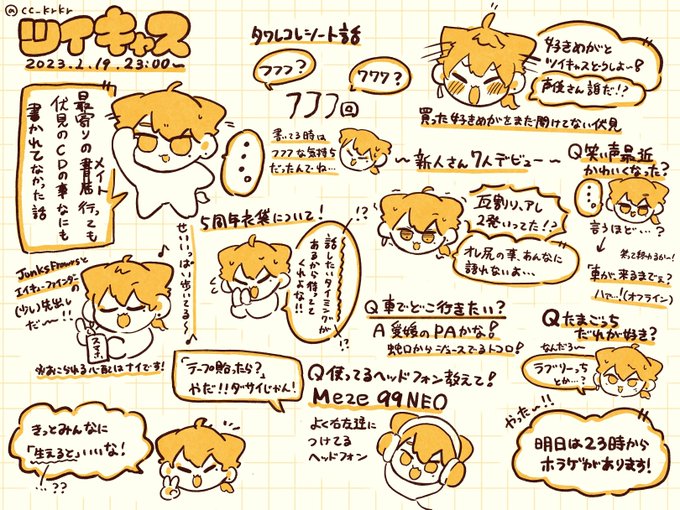 @CC_KrKr
ツイキャス
2023.2.19.23:00~
最寄りの書店行っても
メイト
伏見のCDの事なにも
書かれてなかった話
...。
タワレコレシート話
フフフ?
777?
777回
書いてる時は
フフフな気持ち
だったんでね…
好きめがと
ツイキャスどうしよー!
声優さん誰だ!?
買った好きめがをまだ聞けてない伏見
〜新人さん7人デビュー〜
瓦割り、アレ
2発いってた!?
オレ尻の事、あんなに
語れないよ…
Q笑い声最近
かわいくなった?
...。
言うほど…?
笑って終わるがー!
「車が、来るまでぇ?
ハァ…!(オフライン)
5周年衣装について!
!?
話したいタイミングが
あるから待って
くれよな!!
!?
せいいっぱい歩いてる〜♪
JunksFlowrsと
エイキューファインダーの
(少し)先出し
だ〜!!
スマホ
※怒られる心配はナイです!
「テープ貼ったら?」
やだ!!ダサイじゃん!
Q車でどこ行きたい?
A愛媛のPAかな!
蛇口からジュースでるトコロ!
Q使ってるヘッドフォン教えて!
Meze 99NEO
よく右友達に
つけてる
ヘッドフォン
Qたまごっち
だれが好き?
なんだろ〜
ラブリーっち
とか…?
やったー!!
明日は23時から
ホラゲがあります!
きっとみんなに
「生えると」いいな!
…??